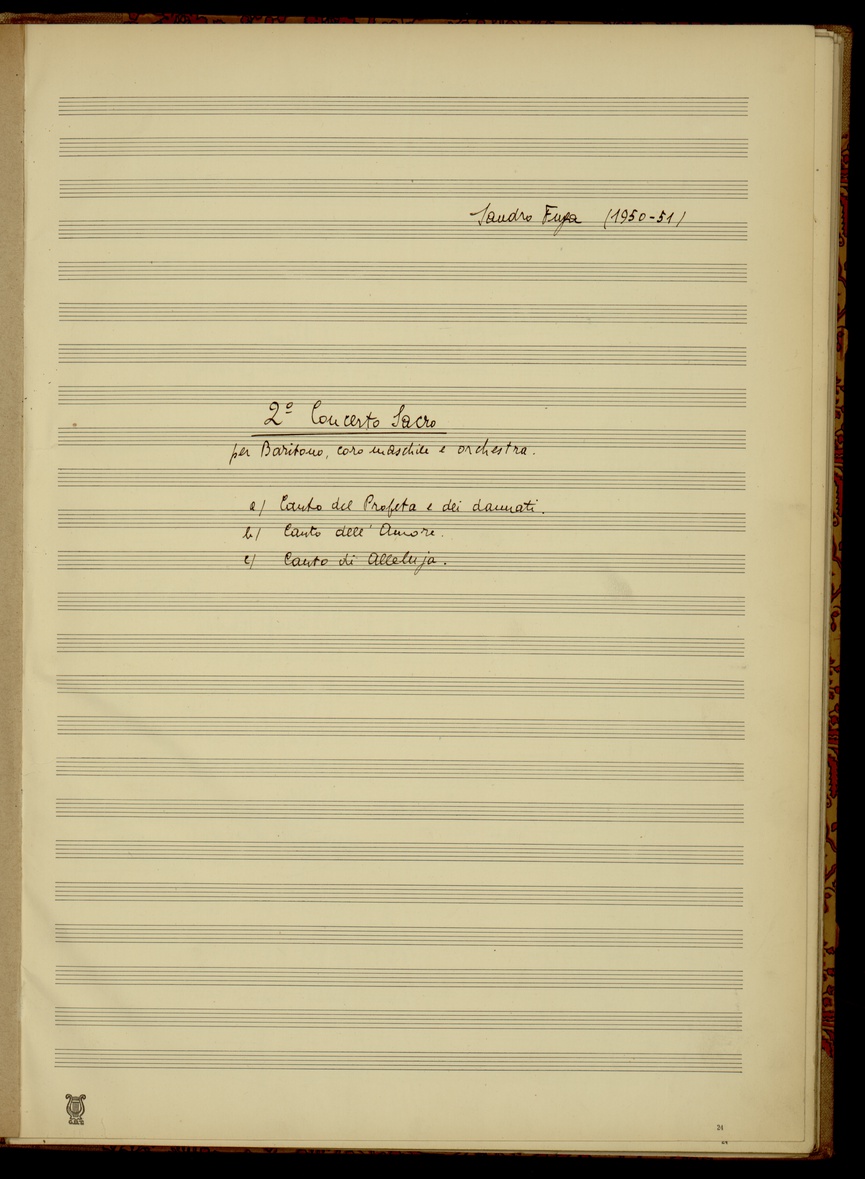 Sandro Fuga (1950-51)
2º Concerto Sacro
per Baritono, coro maschile e orchestra.
a) Canto del Profeta e dei dannati.
b) Canto dell'Amore.
c) Canto di Alleluja.
24